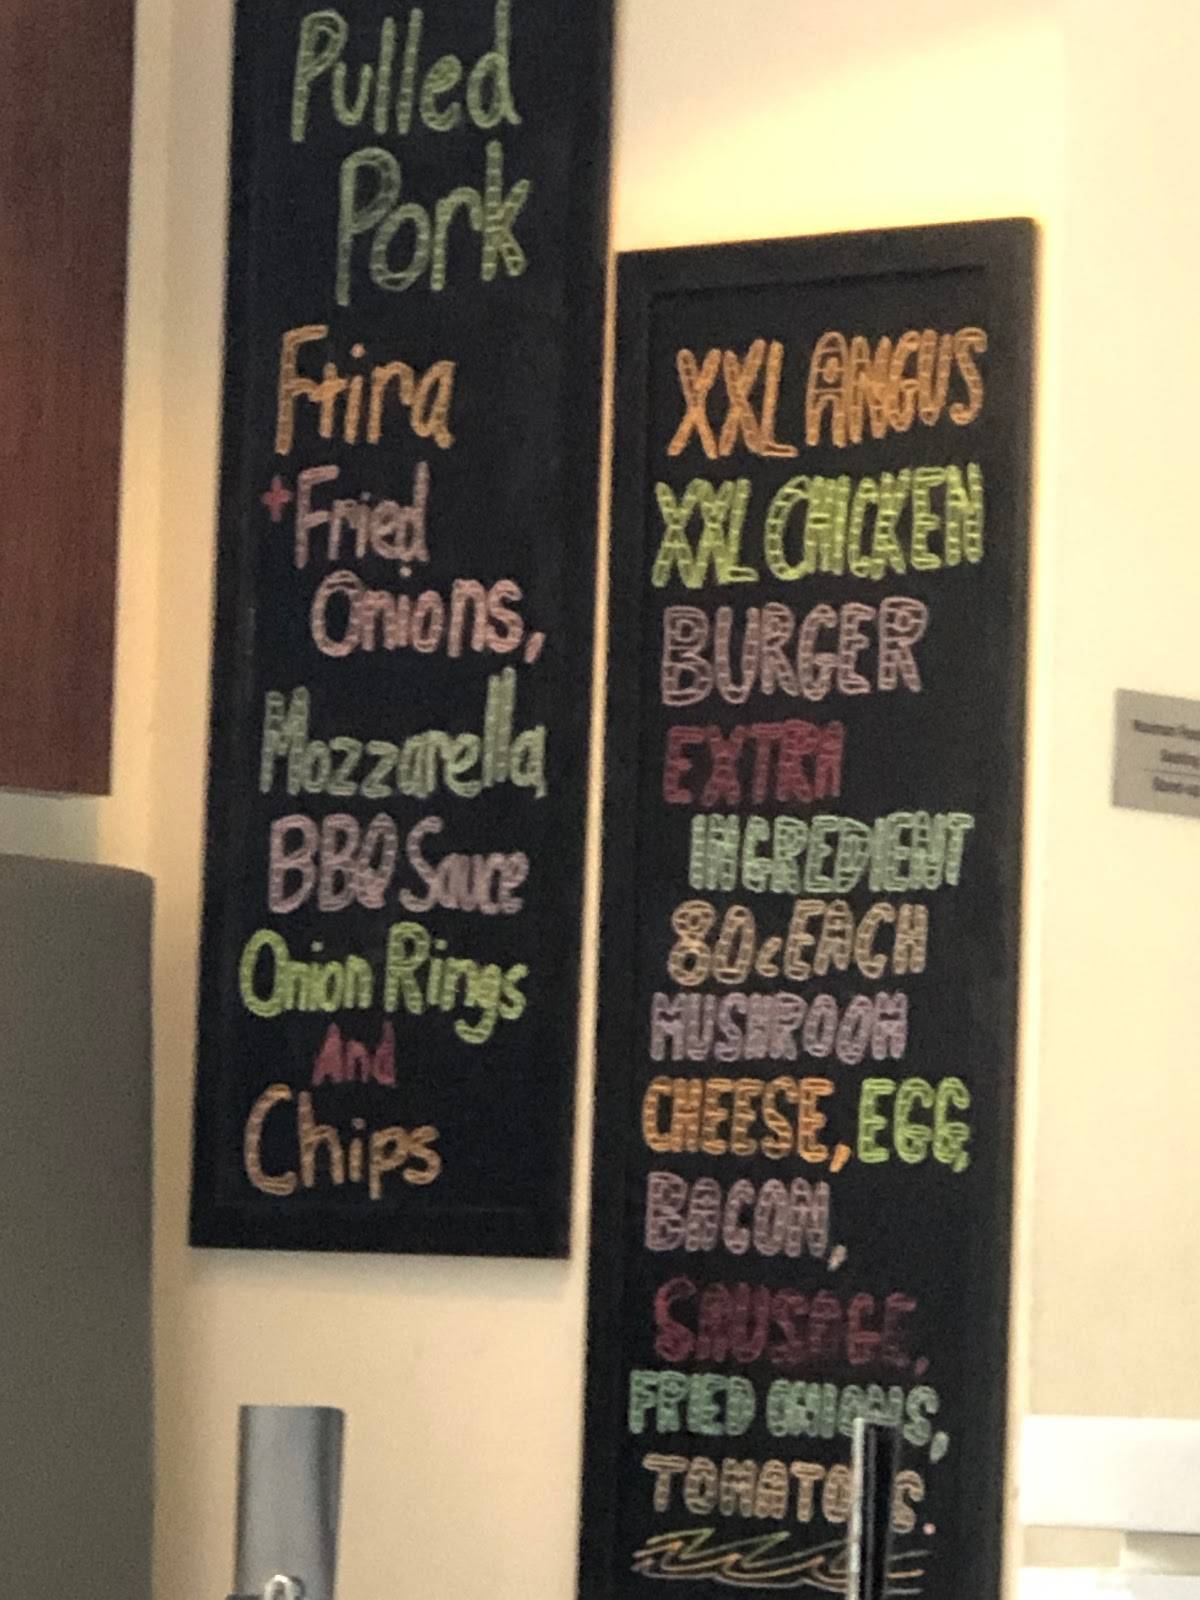 Pulled
Pork
Ftira
+Fried
Onions,
Mozzarella
BBQ Sauce
Onion Rings
And
Chips
XXL ANGUS
XXL CHICKEN
BURGER
EXTRA
INGREDIENT
80c EACH
MUSHROOM
CHEESE, EGG,
BACON,
SAUSAGE,
FRIED ONIONS,